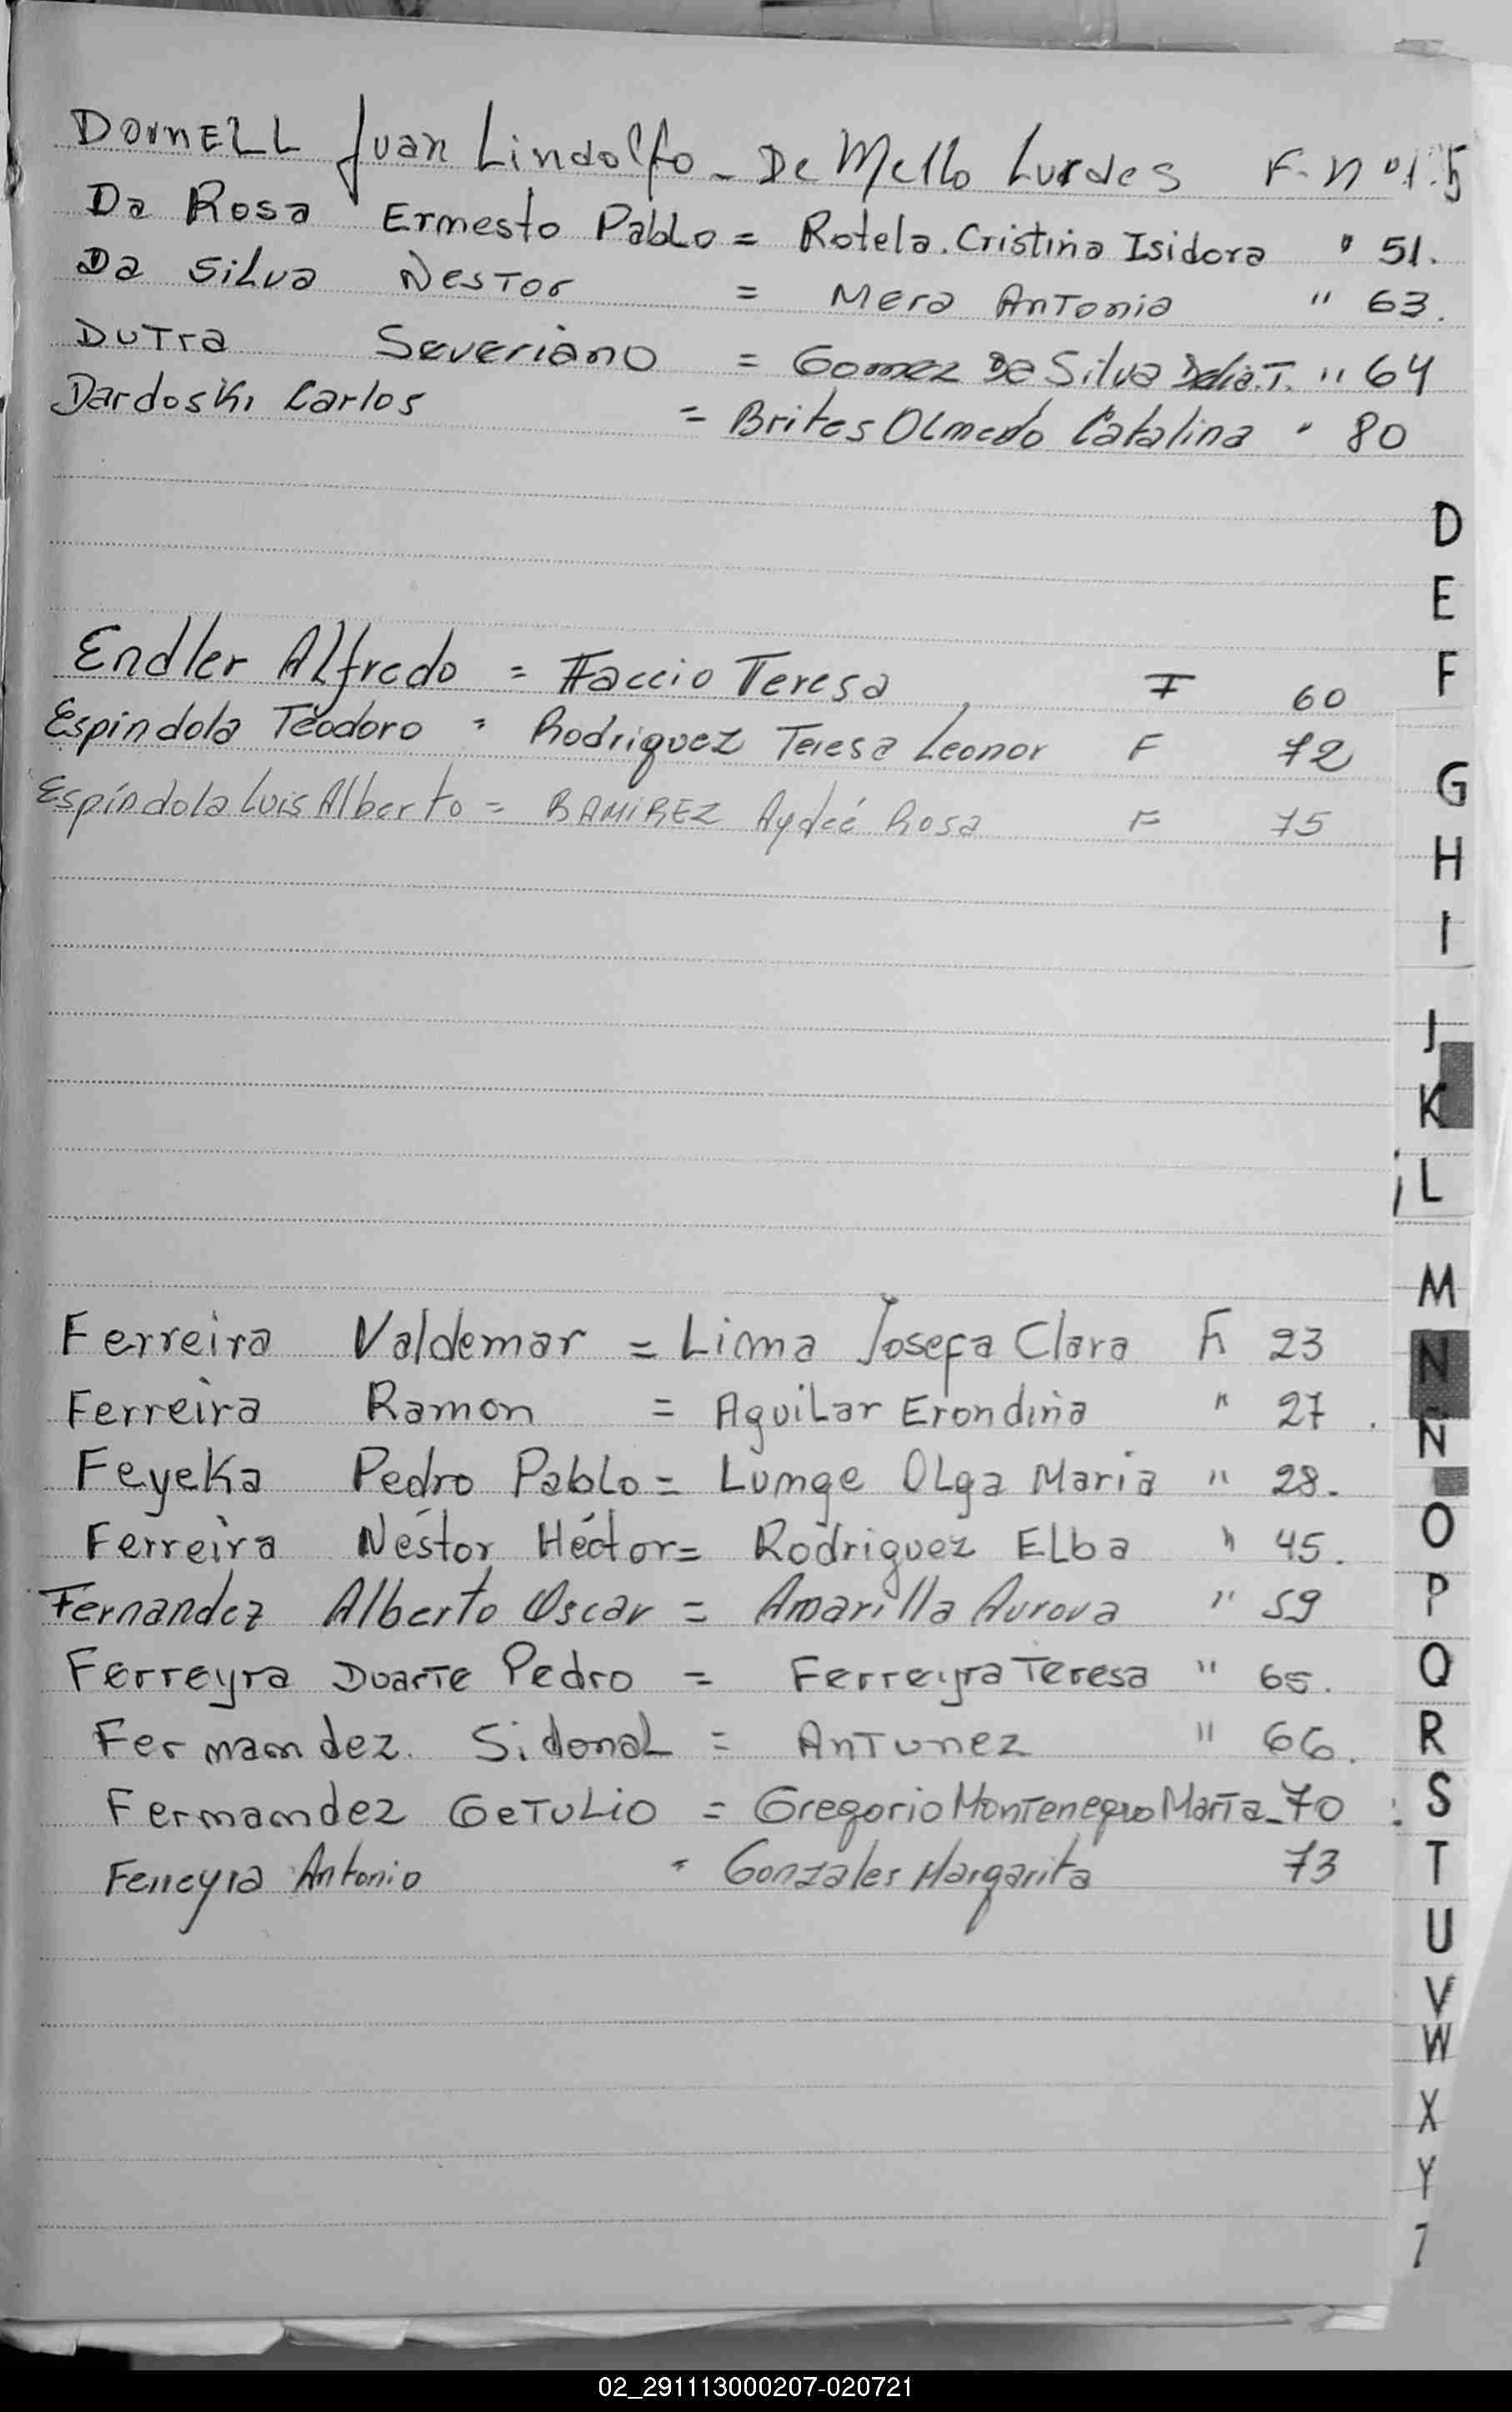 DornELL Juan Lindolfo - De Mello Lurdes F. nº 1.5
Da Rosa Ernesto Pablo = Rotela. Cristina Isidora " 51.
Da Silva Nestor = Mera Antonia " 63.
Dutra Severiano = Gomez Da Silva Delia.T. " 64
Dardoski Carlos = Brites Olmedo Catalina " 80
Endler Alfredo = Faccio Teresa F 60
Espindola Teodoro = Rodriguez Teresa Leonor F 72
Espíndola Luis Alberto = RAMIREZ Aydeé Rosa F 75
Ferreira Valdemar = Lima Josefa Clara F. 23
Ferreira Ramon = Aguilar Erondina " 27.
Feyeka Pedro Pablo = Lunge Olga Maria " 28.
Ferreira Néstor Héctor = Rodriguez Elba " 45.
Fernandez Alberto Oscar = Amarilla Aurora " 59
Ferreyra Duarte Pedro = Ferreyra Teresa " 65.
Fernandez. Sidonal = Antunez " 66.
Fernandez Getulio = Gregorio Montenegro Marta - 70
Ferreyra Antonio = Gonzales Margarita 73
D
E
F
G
H
I
J
K
L
M
N
Ñ
O
P
Q
R
S
T
U
V
W
X
Y
02_291113000207-020721